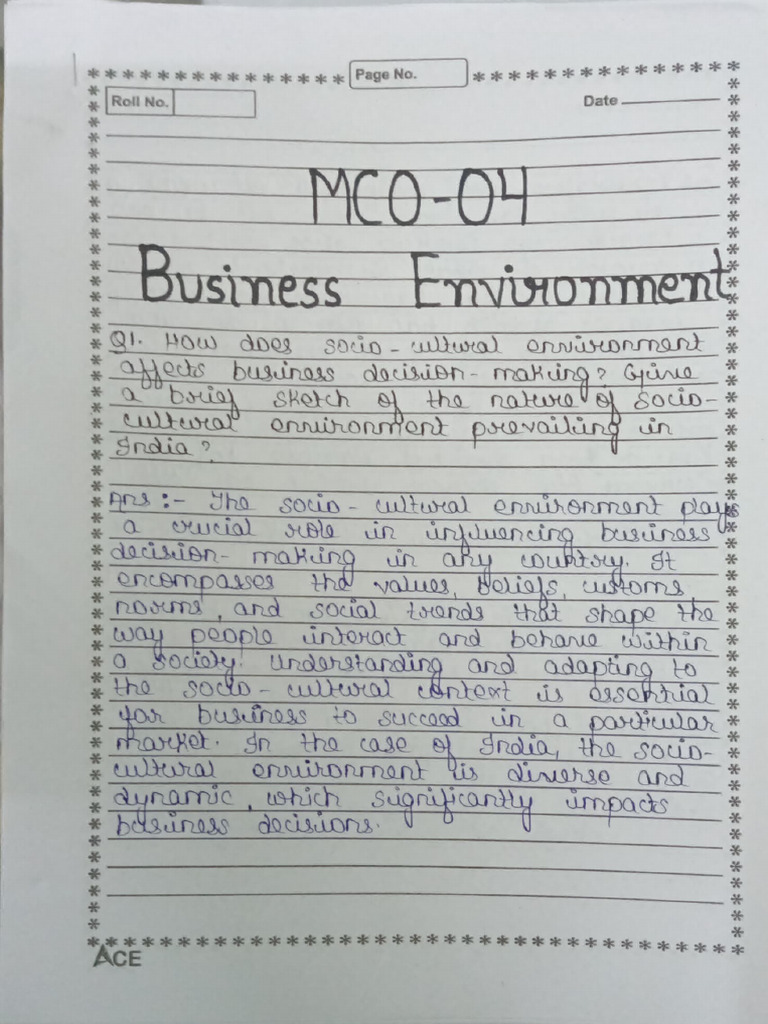 Page No.
Roll No.
Date
MCO-04
Business Environment
Q1. How does socio-cultural environment
affects business decision-making? Give
a brief sketch of the nature of socio-
cultural environment prevailing in
India?
Ans :- The socio-cultural environment plays
a crucial role in influencing business
decision-making in any country. It
encompasses the values, beliefs, customs,
norms, and social trends that shape the
way people interact and behave within
a society. Understanding and adapting to
the socio-cultural context is essential
for business to succeed in a particular
market. In the case of India, the socio-
cultural environment is diverse and
dynamic, which significantly impacts
business decisions.
ACE